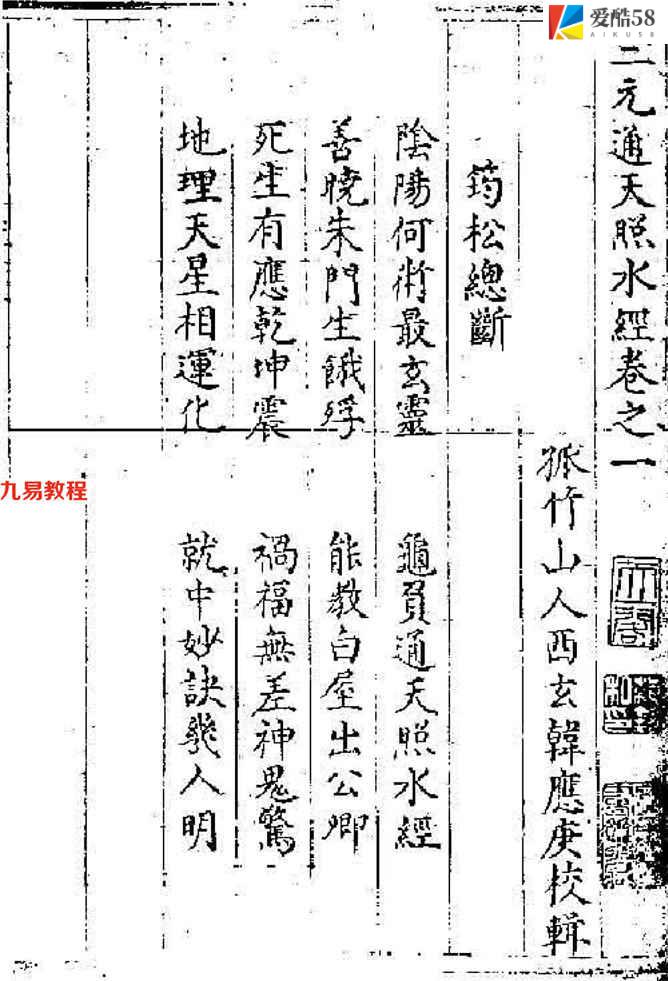 爱酷58
AIKU58
三元通天照水經卷之一
孤竹山人西玄韓應庚校輯
筠松總斷
陰陽何術最玄靈 龜負通天照水經
善曉朱門生餓殍 能教白屋出公卿
死生有應乾坤震 禍福無差神鬼驚
地理天星相運化 就中妙訣幾人明
九易教程